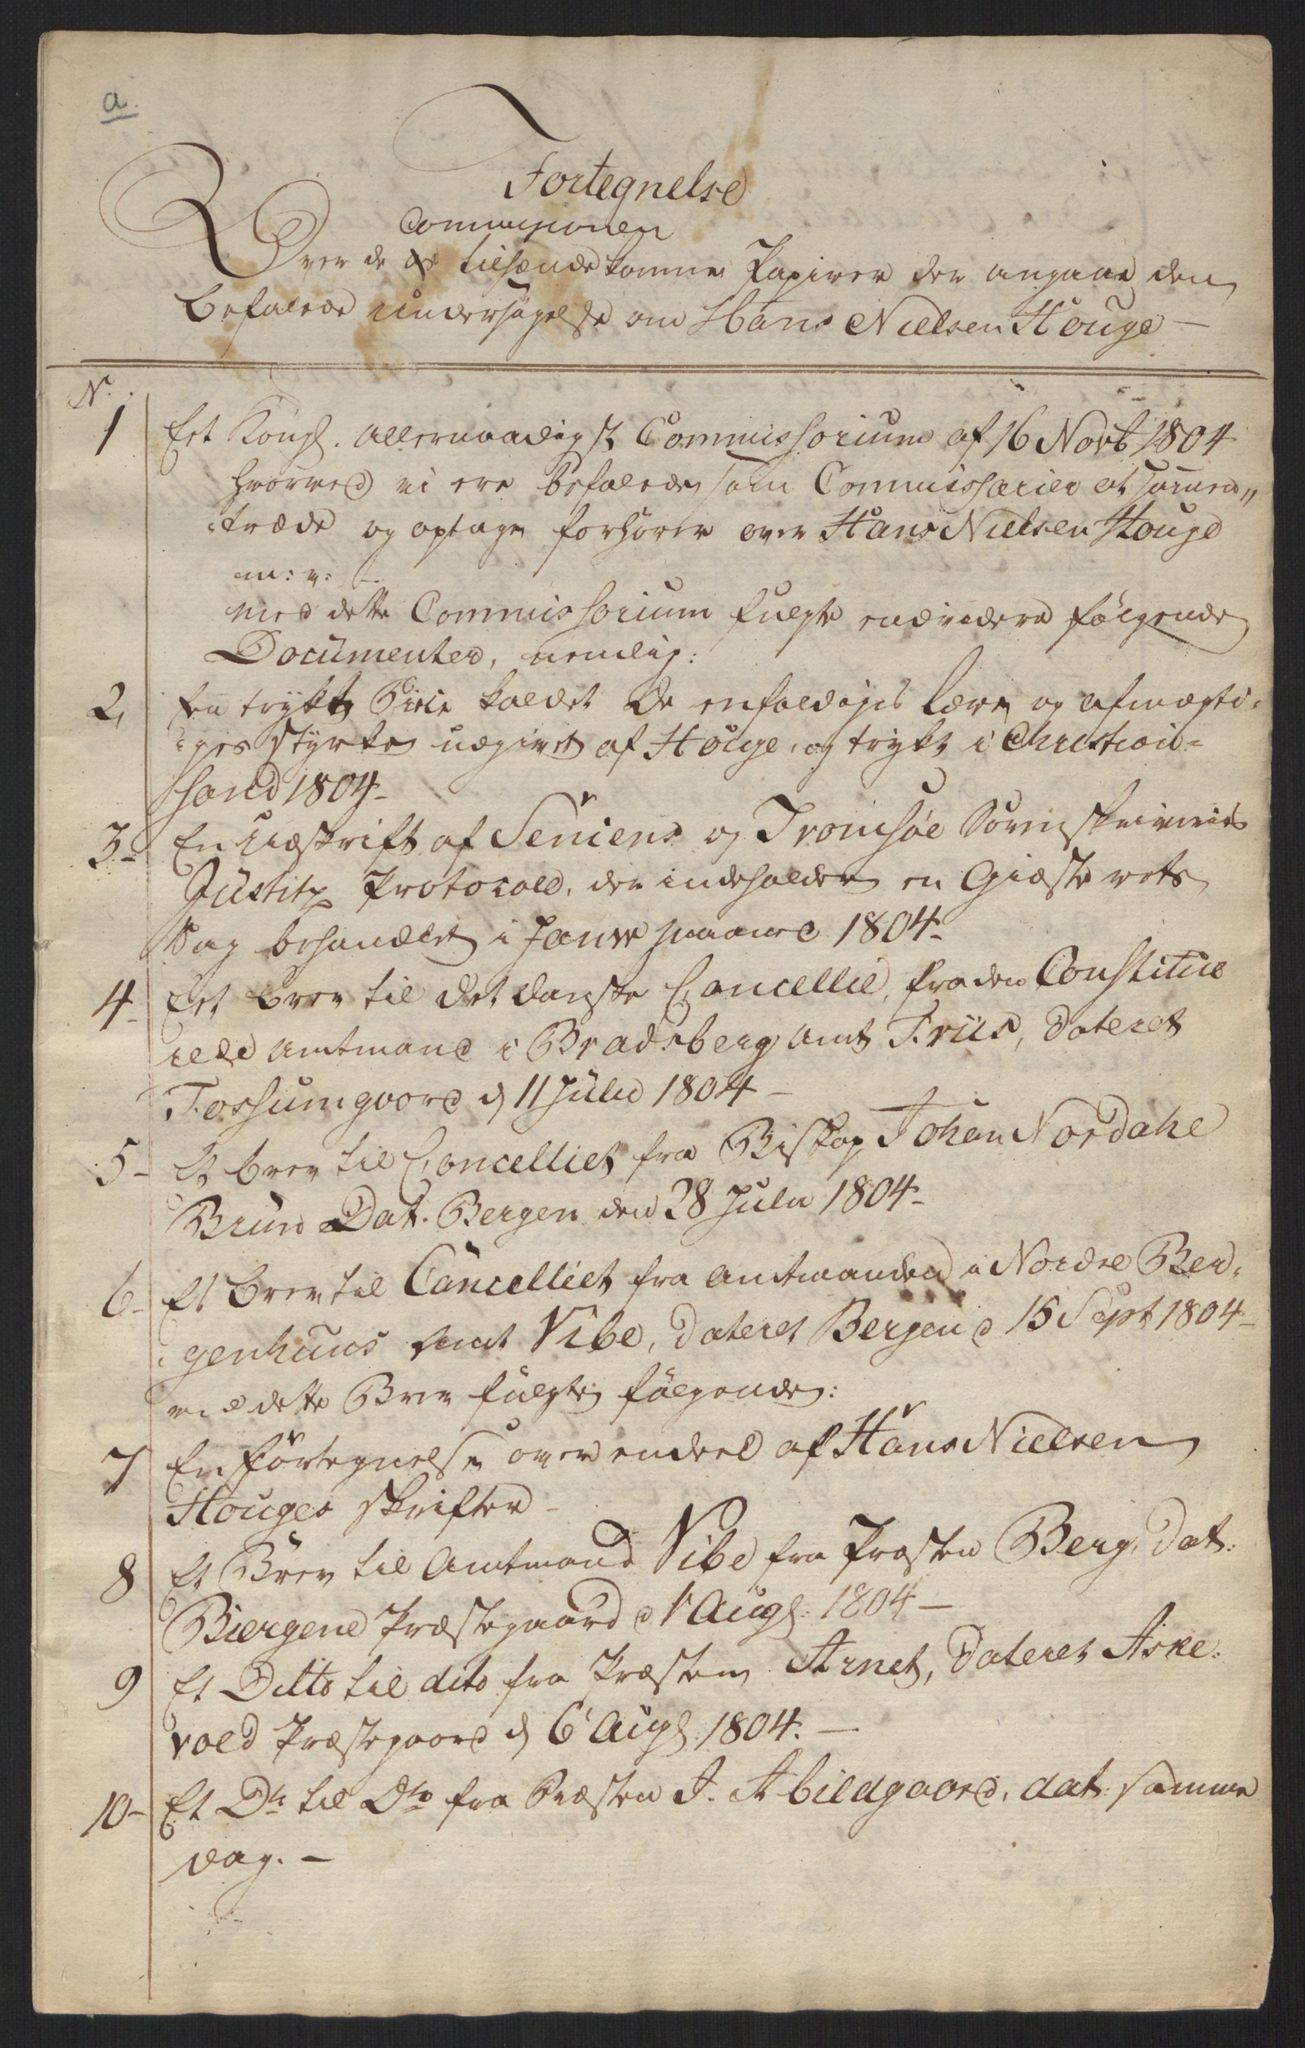 a.
Fortegnelse
Commissionen
Over de tilhændekomne Papirer der angaae den
befalede Undersøgelse om Hans Nielsen Houge —
N.
1 Eet Kongl. allernaadigst Commissorium af 16 Novb 1804
hvorved vi ere befalede som Commissarier at sammen„
træde og optage forhører over Hans Nielsen Houge
m: v: —
Med dette Commissorium fulgte endvidere følgende
Documenter, nemlig:
2, En trykt Piece kaldet De enfoldiges Lære og afmægti-
ges Styrke udgivet af Houge, og trykt i Christian-
sand 1804 -
3 - En Udskrift af Seniens og Tromsøe Sorenskriveries
Justitz Protocoll, der indeholder en Giæsterets
Sag behandlet i Januar maaned 1804 -
4 - Eet brev til det danske Cancellie, fra den Constitue
rede Amtmand i Bradsberg Amt Friis, dateret
Fossumgaard d 11 Julii 1804 -
5 - Et brev til Cancelliet fra Biskop Johan Nordahl
Brun Dat. Bergen den 28 Julii 1804 -
6 - Et brev til Cancelliet fra Amtmanden i Nordre Ber-
genhuus Amt Vibe, dateret Bergen d 15 Sept 1804 -
med dette Brev fulgte følgende:
7 En Fortegnelse over endeel af Hans Nielsen
Houges skrifter -
8 Et Brev til Amtmand Vibe fra Præsten Berg, dat:
Præstegaard d 1 Aug: 1804 —
9 Et Ditto til dito fra Præsten Arnet, dateret Aske-
vold Præstegaard d 6 Aug: 1804. —
10 - Et Dto til Dto fra Præsten J. Abildgaard, dat: samme
dag. —